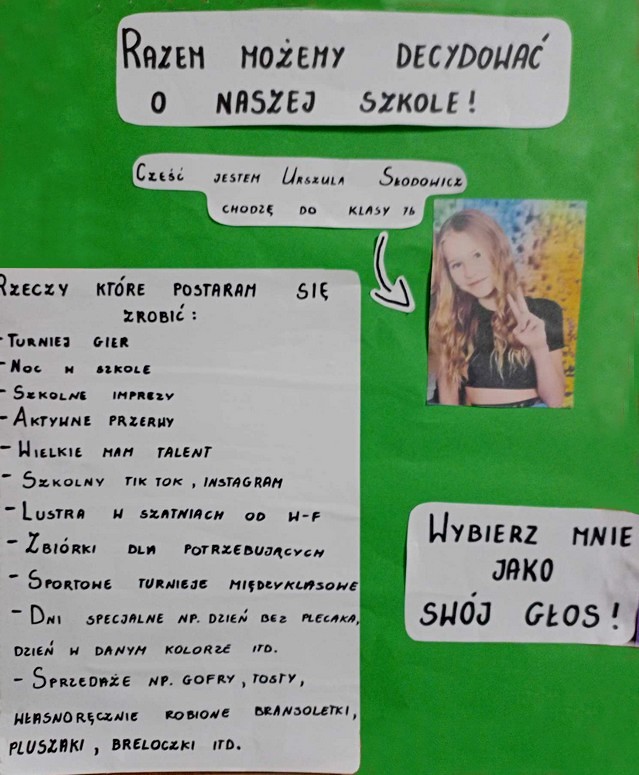 RAZEM MOŻEMY DECYDOWAĆ
O NASZEJ SZKOLE!
CZEŚĆ JESTEM URSZULA SŁODOWICZ
CHODZĘ DO KLASY 7b
RZECZY KTÓRE POSTARAM SIĘ
ZROBIĆ:
- TURNIEJ GIER
- NOC W SZKOLE
- SZKOLNE IMPREZY
- AKTYWNE PRZERWY
- WIELKIE MAM TALENT
- SZKOLNY TIK TOK, INSTAGRAM
- LUSTRA W SZATNIACH OD W-F
- ZBIÓRKI DLA POTRZEBUJĄCYCH
- SPORTOWE TURNIEJE MIĘDZYKLASOWE
- DNI SPECJALNE NP. DZIEŃ BEZ PLECAKA,
DZIEŃ W DANYM KOLORZE ITD.
- SPRZEDAŻE NP. GOFRY, TOSTY,
WŁASNORĘCZNIE ROBIONE BRANSOLETKI,
PLUSZAKI, BRELOCZKI ITD.
WYBIERZ MNIE
JAKO
SWÓJ GŁOS!